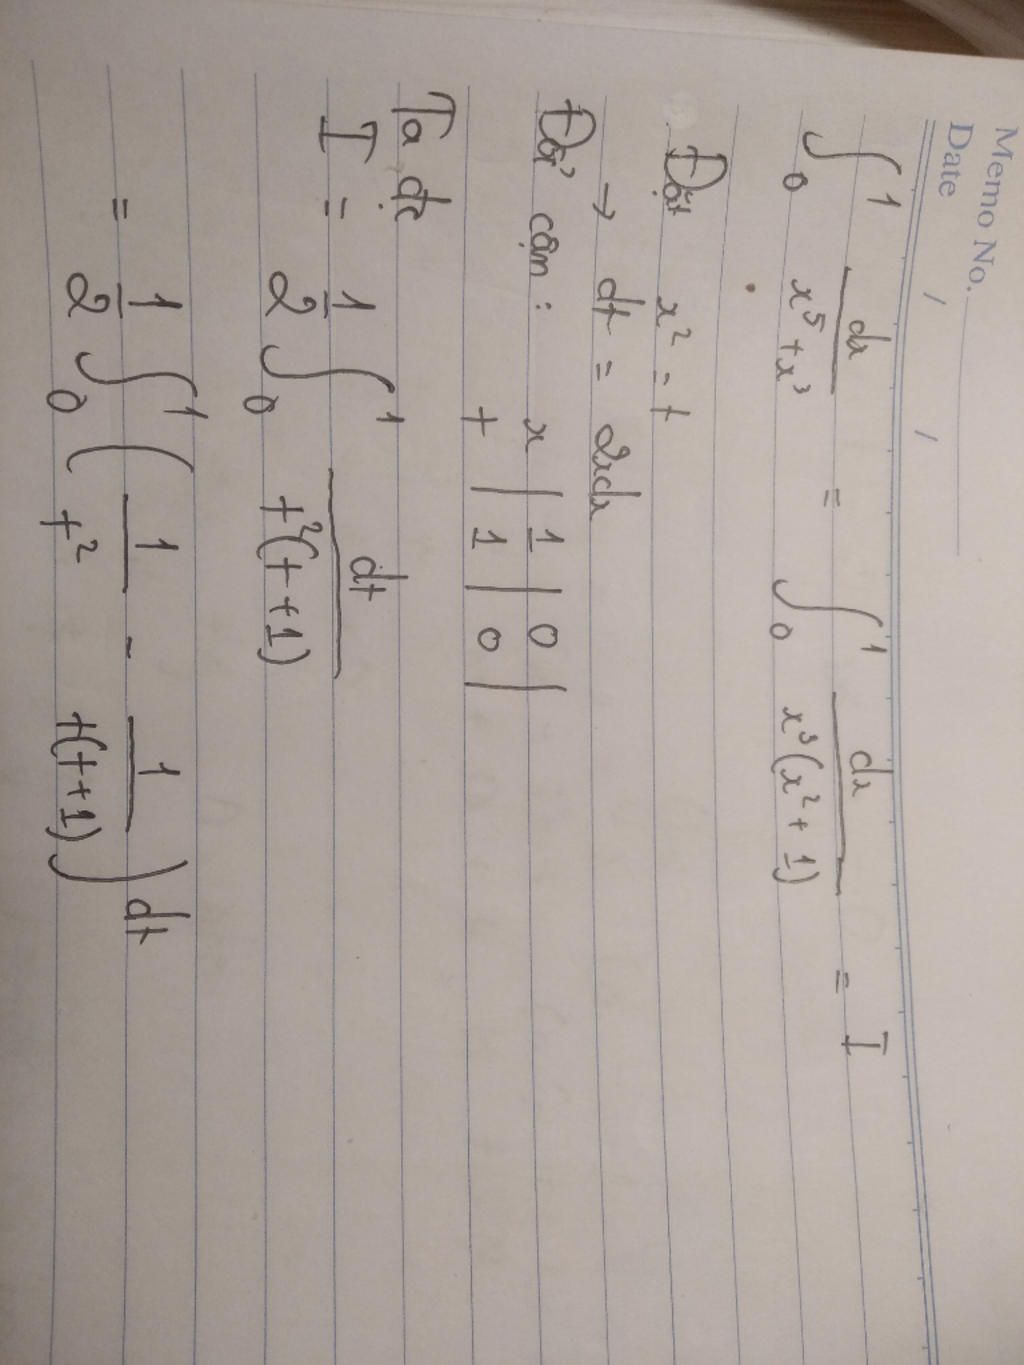 Memo No.
Date / /
∫₀¹ dx/(x⁵+x³) = ∫₀¹ dx/(x³(x²+1)) = I
Đặt x² = t
→ dt = 2xdx
Đổi cận: x | 1 | 0 |
t | 1 | 0 |
Ta đc
I = 1/2 ∫₀¹ dt/(t²(t+1))
= 1/2 ∫₀¹ (1/t² - 1/(t(t+1))) dt